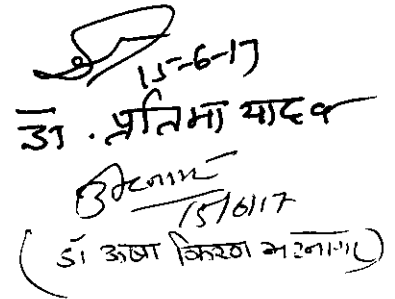 15-6-17
डा. प्रतिमा यादव
15/6/17
(डॉ ऊषा किरण भटनागर)